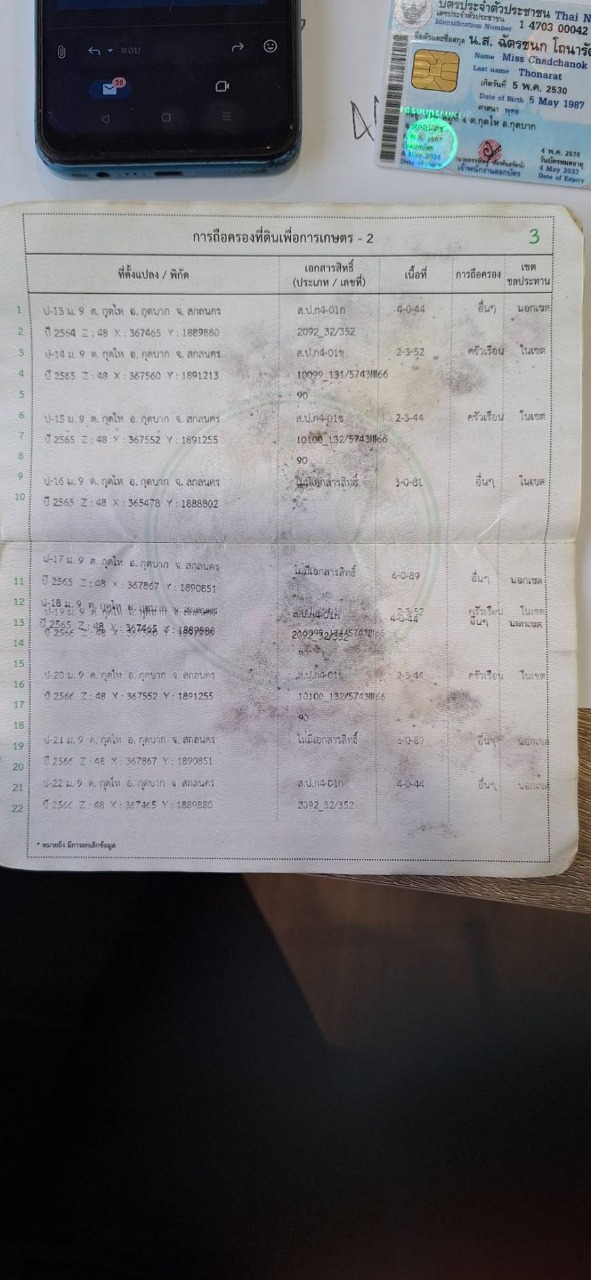 ตอบ
38
บัตรประจำตัวประชาชน Thai N
เลขประจำตัวประชาชน 1 4703 00042
Identification Number
ชื่อตัวและชื่อสกุล น.ส. ฉัตรชนก โถนารัต
Name Miss Chadchanok
Last name Thonarat
เกิดวันที่ 5 พ.ค. 2530
Date of Birth 5 May 1987
ศาสนา พุทธ
4 ต.กุดไห อ.กุดบาก
4 พ.ค. 2576
วันบัตรหมดอายุ
เจ้าพนักงานออกบัตร
Date of Expiry
การถือครองที่ดินเพื่อการเกษตร - 2
3
ที่ตั้งแปลง / พิกัด เอกสารสิทธิ์ (ประเภท / เลขที่) เนื้อที่ การถือครอง เขตชลประทาน
1 ป-13 ม. 9 ต. กุดไห อ. กุดบาก จ. สกลนคร ส.ป.ก4-01ก 4-0-44 อื่นๆ นอกเขต
2 ปี 2564 Z : 48 X : 367465 Y : 1889880 2092_32/352
3 ป-14 ม. 9 ต. กุดไห อ. กุดบาก จ. สกลนคร ส.ป.ก4-01ข 2-3-52 ครัวเรือน ในเขต
4 ปี 2565 Z : 48 X : 367560 Y : 1891213 10099_131/5743III66
5 90
6 ป-15 ม. 9 ต. กุดไห อ. กุดบาก จ. สกลนคร ส.ป.ก4-01ข 2-3-44 ครัวเรือน ในเขต
7 ปี 2565 Z : 48 X : 367552 Y : 1891255 10100_132/5743III66
8 90
9 ป-16 ม. 9 ต. กุดไห อ. กุดบาก จ. สกลนคร ไม่มีเอกสารสิทธิ์ 3-0-81 อื่นๆ ในเขต
10 ปี 2565 Z : 48 X : 365478 Y : 1888802
ป-17 ม. 9 ต. กุดไห อ. กุดบาก จ. สกลนคร ไม่มีเอกสารสิทธิ์ 6-0-89 อื่นๆ นอกเขต
11 ปี 2565 Z : 48 X : 367867 Y : 1890851
12 ป-18 ม. 9 ต. กุดไห อ. กุดบาก จ. สกลนคร 2-3-52 ครัวเรือน ในเขต
ป-19 ม. 9 ต. กุดไห อ. กุดบาก จ. สกลนคร ส.ป.ก4-01ก 4-0-44 อื่นๆ นอกเขต
13
14
90
15
16 ป-20 ม. 9 ต. กุดไห อ. กุดบาก จ. สกลนคร ส.ป.ก4-01ข 2-3-44 ครัวเรือน ในเขต
17 ปี 2566 Z : 48 X : 367552 Y : 1891255 10100_132/5743III66
18 90
19 ป-21 ม. 9 ต. กุดไห อ. กุดบาก จ. สกลนคร ไม่มีเอกสารสิทธิ์ 6-0-89 อื่นๆ นอกเขต
20 ปี 2566 Z : 48 X : 367867 Y : 1890851
21 ป-22 ม. 9 ต. กุดไห อ. กุดบาก จ. สกลนคร ส.ป.ก4-01ก 4-0-44 อื่นๆ นอกเขต
22 ปี 2566 Z : 48 X : 367465 Y : 1889880 2092_32/352
* หมายถึง มีการยกเลิกข้อมูล